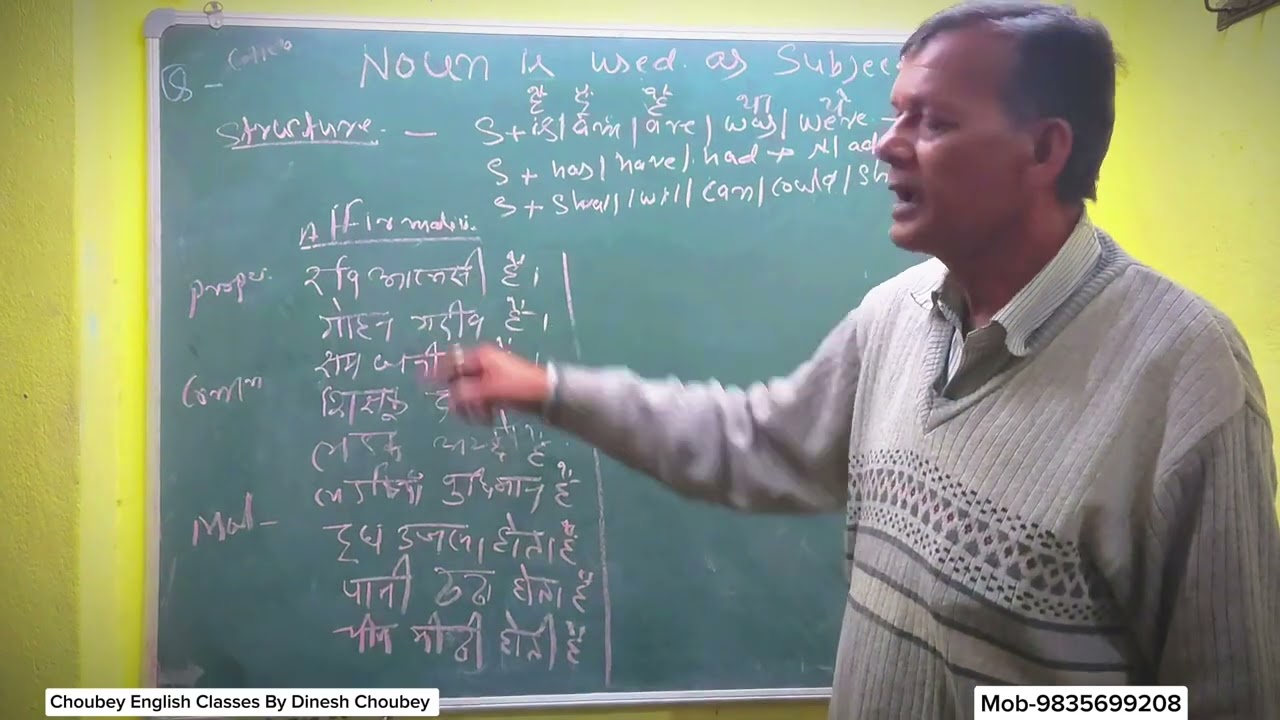 Q - Noun is used as Subjec
है हूँ हैं था थे
Structure. - S + is / am / are / was / were -
S + has / have / had + N / ad
S + shall / will / can / could / Sh
Affirmativ.
Proper. रवि आलसी है।
मोहन गरीब है।
Comm
शिक्षक
लड़के अच्छे हैं
लड़कियाँ बुद्धिमान हैं
Mat - दूध उजला होता है
पानी ठंढा होता है
चीनी मीठी होती है
Choubey English Classes By Dinesh Choubey
Mob-9835699208